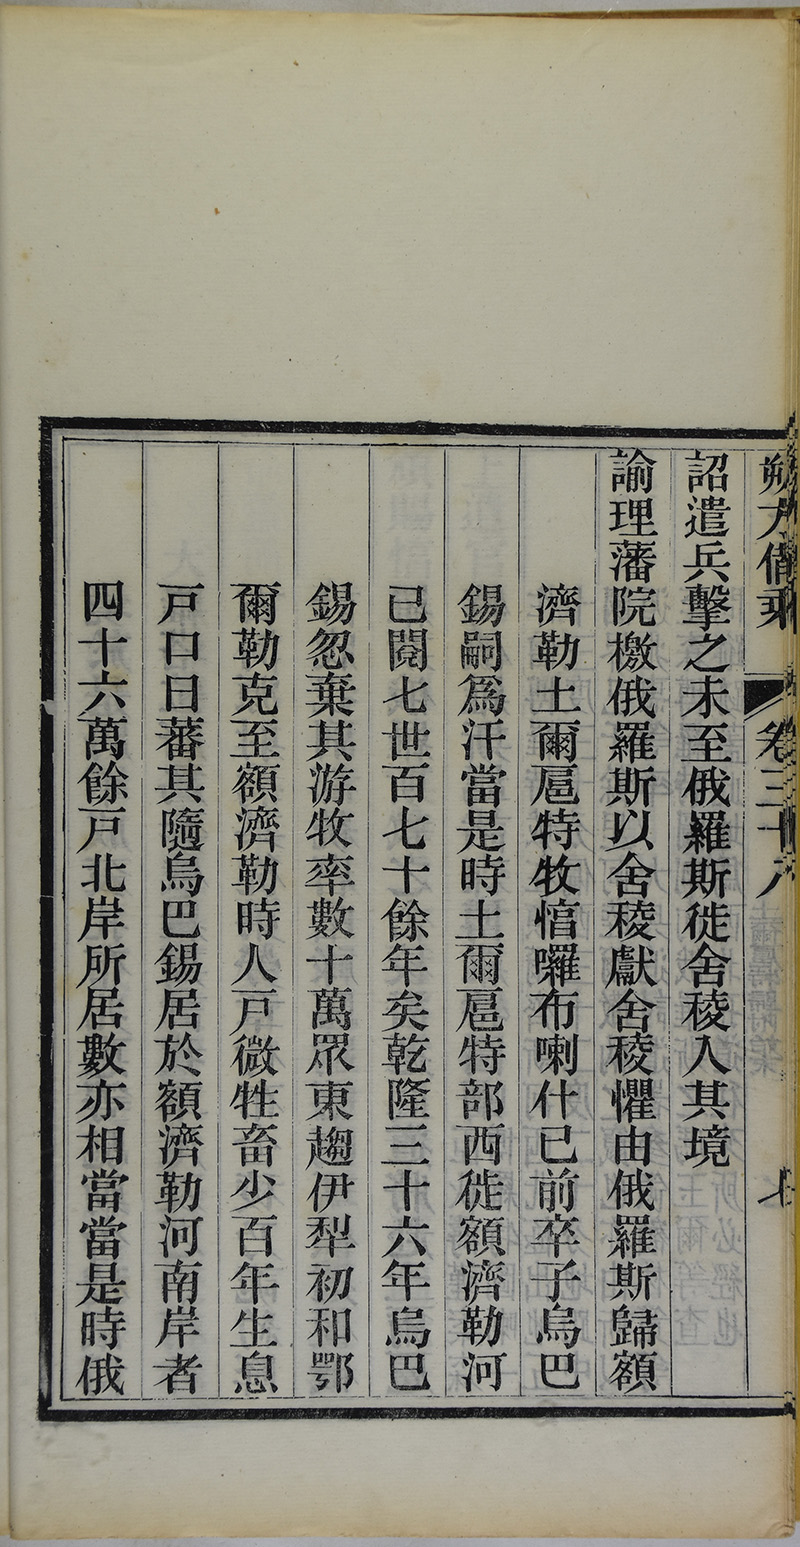 朔方備乘 卷三十八 七
詔遣兵擊之未至俄羅斯徙舍稜入其境
諭理藩院檄俄羅斯以舍稜獻舍稜懼由俄羅斯歸額
濟勒土爾扈特牧㥬囉布喇什已前卒子烏巴
錫嗣爲汗當是時土爾扈特部西徙額濟勒河
已閱七世百七十餘年矣乾隆三十六年烏巴
錫忽棄其游牧率數十萬眾東趨伊犁初和鄂
爾勒克至額濟勒時人戸微牲畜少百年生息
戸口日蕃其隨烏巴錫居於額濟勒河南岸者
四十六萬餘戸北岸所居數亦相當當是時俄